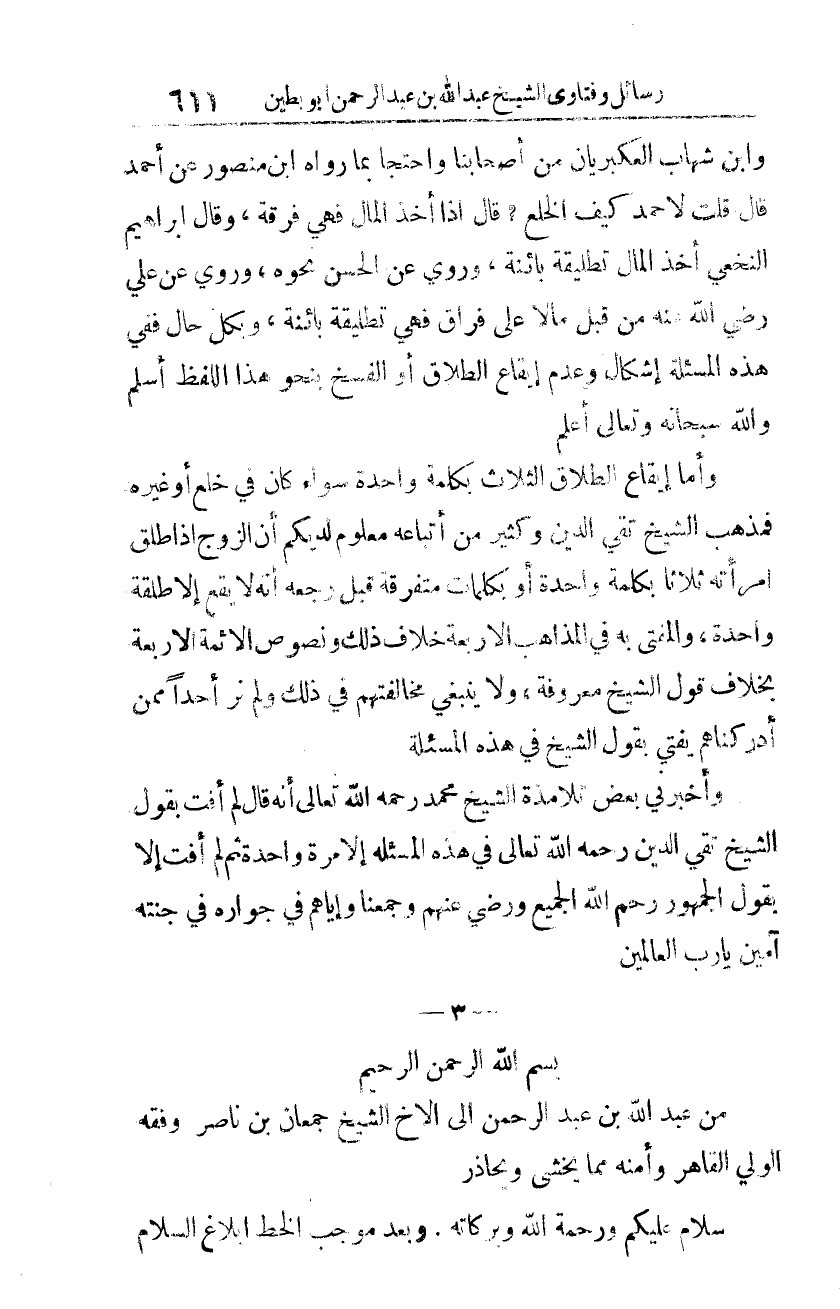 رسائل وفتاوى الشيخ عبدالله بن عبدالرحمن ابو بطين ٦١١
وابن شهاب العكبريان من أصحابنا واحتجا بما رواه ابن منصور عن أحمد
قال قلت لاحمد كيف الخلع ? قال اذا أخذ المال فهي فرقة ، وقال ابراهيم
النخعي أخذ المال تطليقة بائنة ، وروي عن الحسن نحوه ، وروي عن علي
رضي الله عنه من قبل مالا على فراق فهي تطليقة بائنة ، وبكل حال ففي
هذه المسئلة إشكال وعدم إيقاع الطلاق أو الفسخ بنحو هذا اللفظ أسلم
والله سبحانه وتعالى أعلم
وأما إيقاع الطلاق الثلاث بكلمة واحدة سواء كان في خلع أو غيره
فمذهب الشيخ تقي الدين وكثير من أتباعه معلوم لديكم أن الزوج اذا طلق
امرأته ثلاثا بكلمة واحدة أو بكلمات متفرقة قبل رجعه أنه لا يقع إلا طلقة
واحدة ، والمفتى به في المذاهب الاربعة خلاف ذلك ونصوص الائمة الاربعة
بخلاف قول الشيخ معروفة ، ولا ينبغي مخالفتهم في ذلك ولم نر أحداً ممن
أدركناهم يفتي بقول الشيخ في هذه المسئلة
وأخبرني بعض تلامذة الشيخ محمد رحمه الله تعالى أنه قال لم أفت بقول
الشيخ تقي الدين رحمه الله تعالى في هذه المسئله إلا مرة واحدة ثم لم أفت إلا
بقول الجمهور رحم الله الجميع ورضي عنهم وجمعنا وإياهم في جواره في جنته
آمين يارب العالمين
— ٣ —
بسم الله الرحمن الرحيم
من عبد الله بن عبد الرحمن الى الاخ الشيخ جمعان بن ناصر وفقه
الولي القاهر وأمنه مما يخشى ويحاذر
سلام عليكم ورحمة الله وبركاته . وبعد موجب الخط ابلاغ السلام